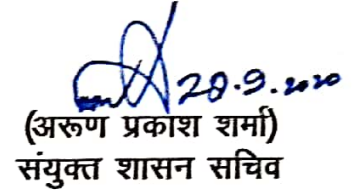 28.9.2020
(अरूण प्रकाश शर्मा)
संयुक्त शासन सचिव